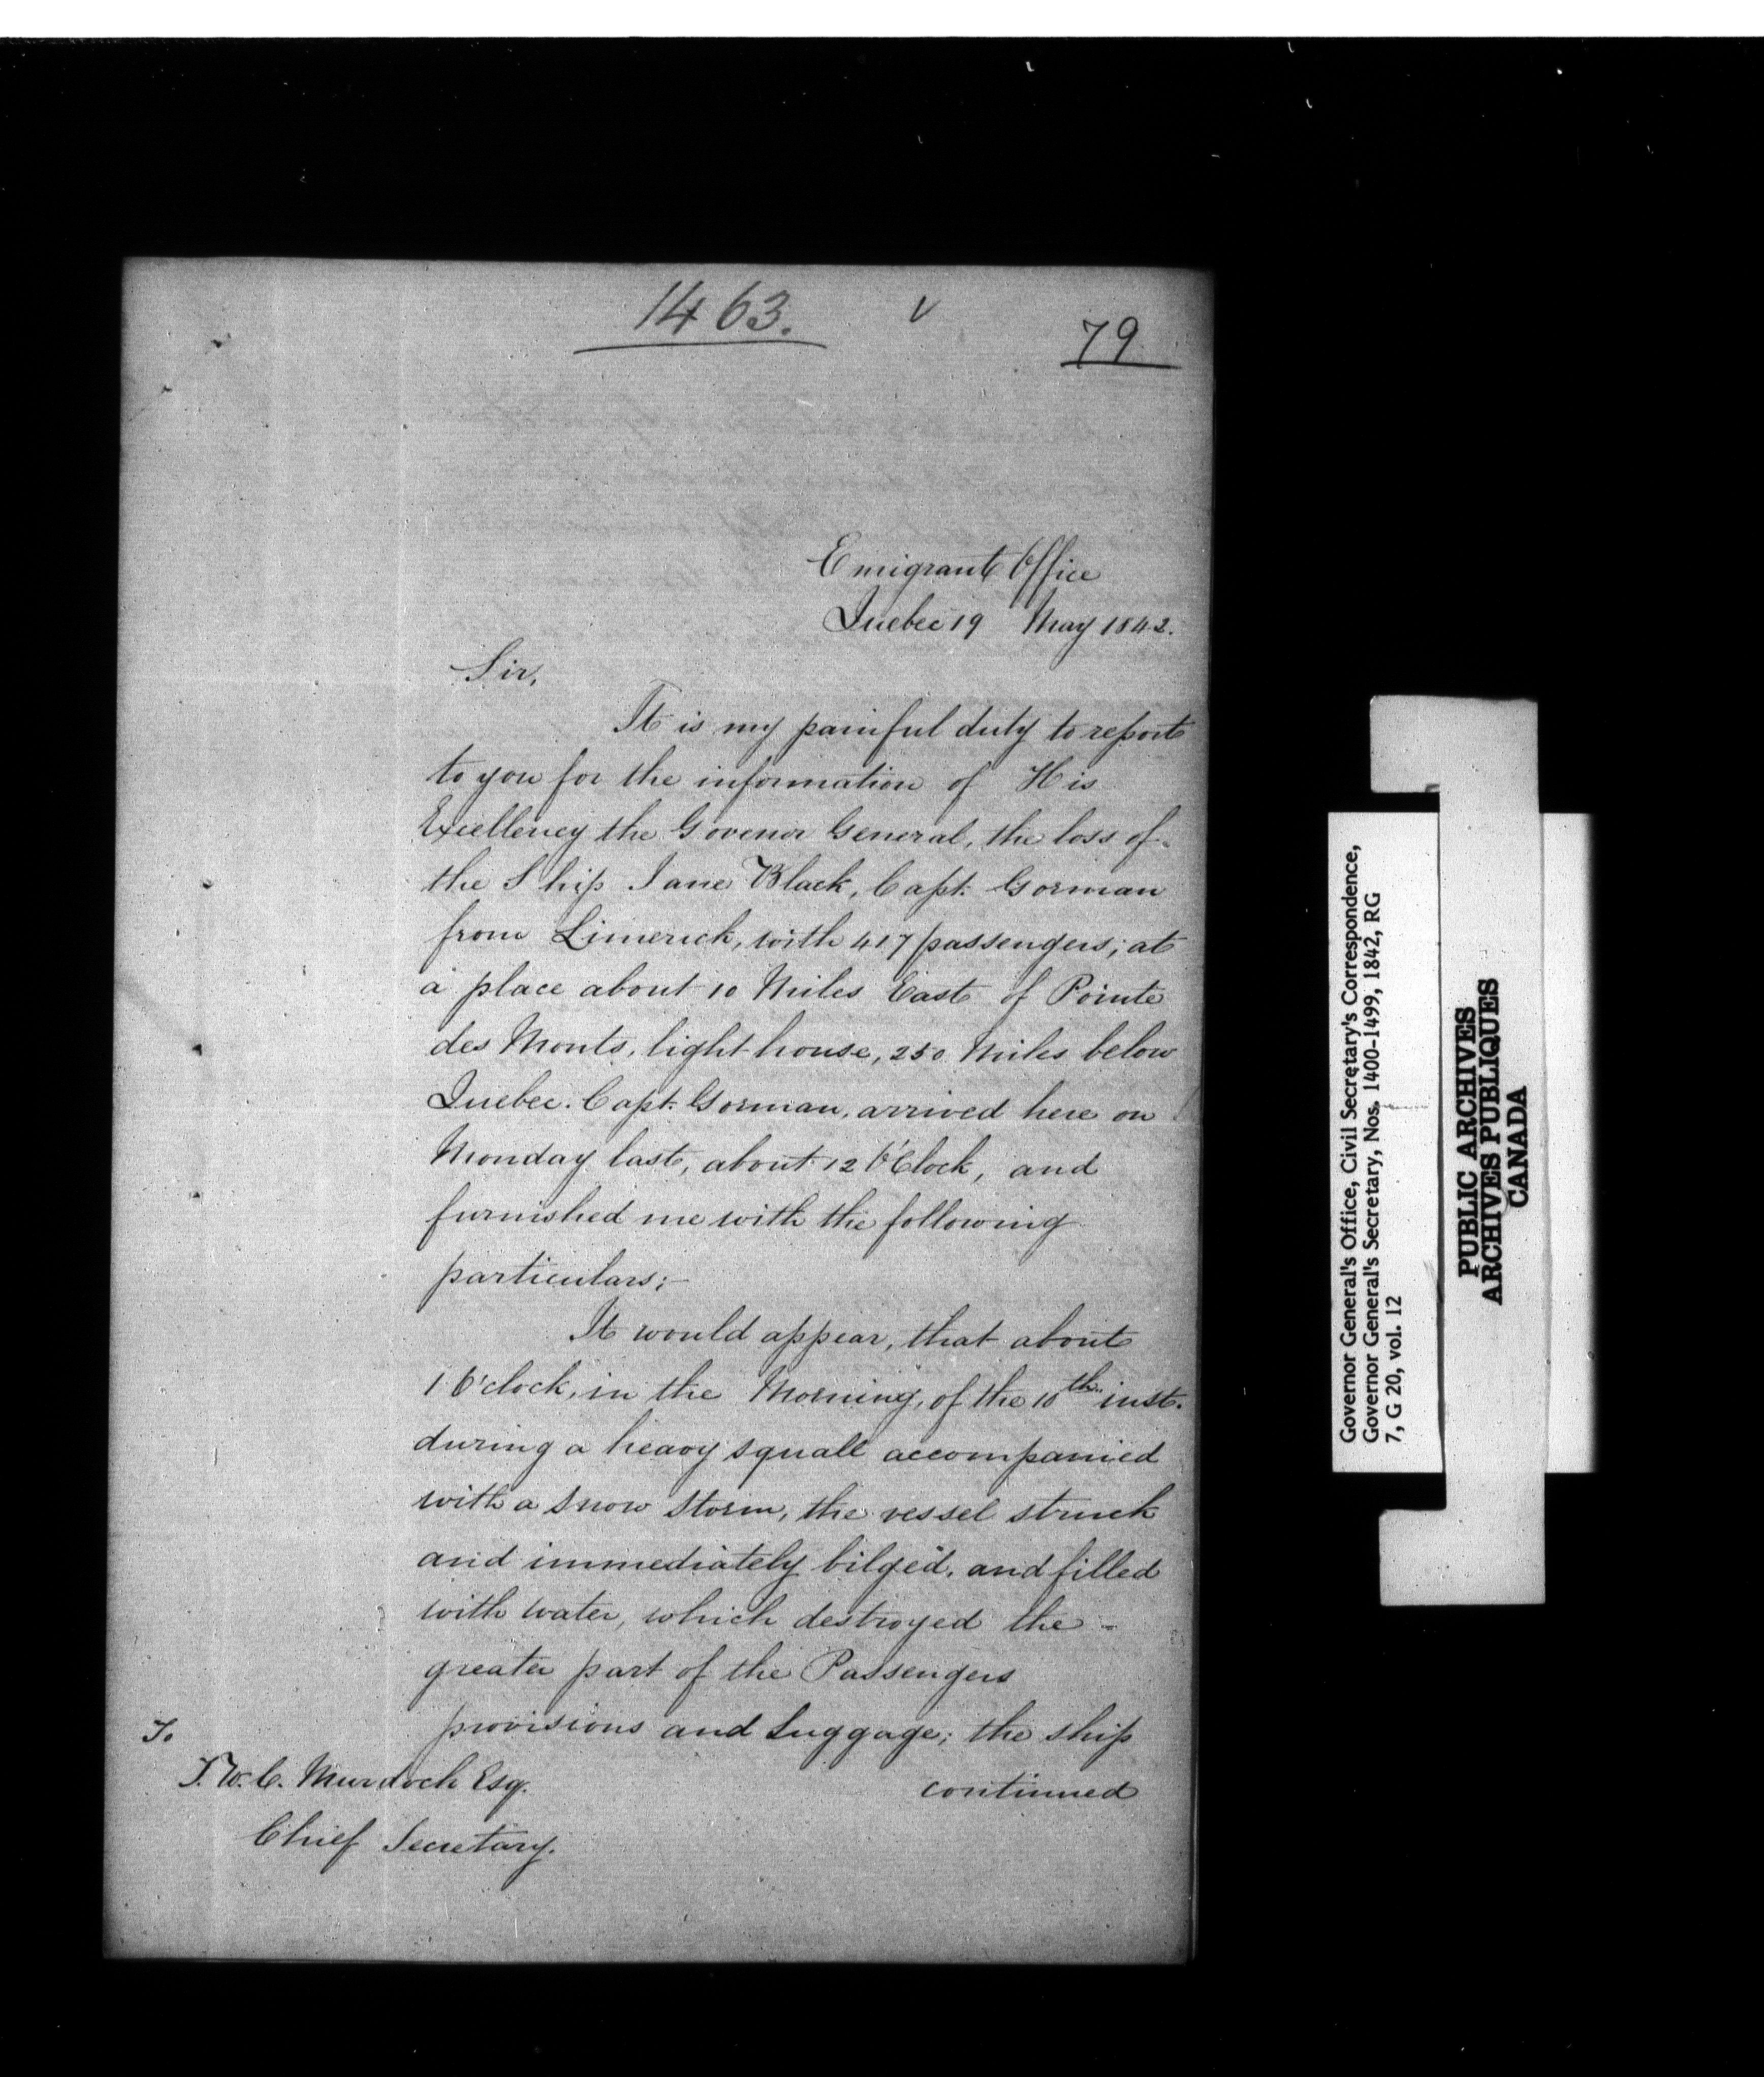 1463. v
79
Emigrant Office
Quebec 19 May 1842.
Sir,
It is my painful duty to report
to you for the information of His
Excellency the Govenor General, the loss of
the Ship Jane Black, Capt. Gorman
from Limerick, with 417 passengers; at
a place about 10 Miles East of Pointe
des Monts, light house, 250 Miles below
Quebec. Capt. Gorman, arrived here on
Monday last, about 12 O'Clock, and
furnished me with the following
particulars;-
It would appear, that about
1 O'clock, in the Morning, of the 10th inst.
during a heavy squall accompanied
with a Snow Storm, the vessel struck
and immediately bilged, and filled
with water, which destroyed the -
greater part of the Passengers
provisions and Luggage; the ship
continued
To
T. W. C. Murdoch Esq.
Chief Secretary.
Governor General's Office, Civil Secretary's Correspondence,
Governor General's Secretary, Nos. 1400-1499, 1842, RG
7, G 20, vol. 12
PUBLIC ARCHIVES
ARCHIVES PUBLIQUES
CANADA